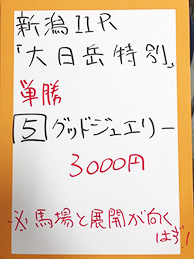 新潟11R
「大日岳特別」
単勝
5 グッドジュエリー
3000円
※馬場と展開が向く
はず!